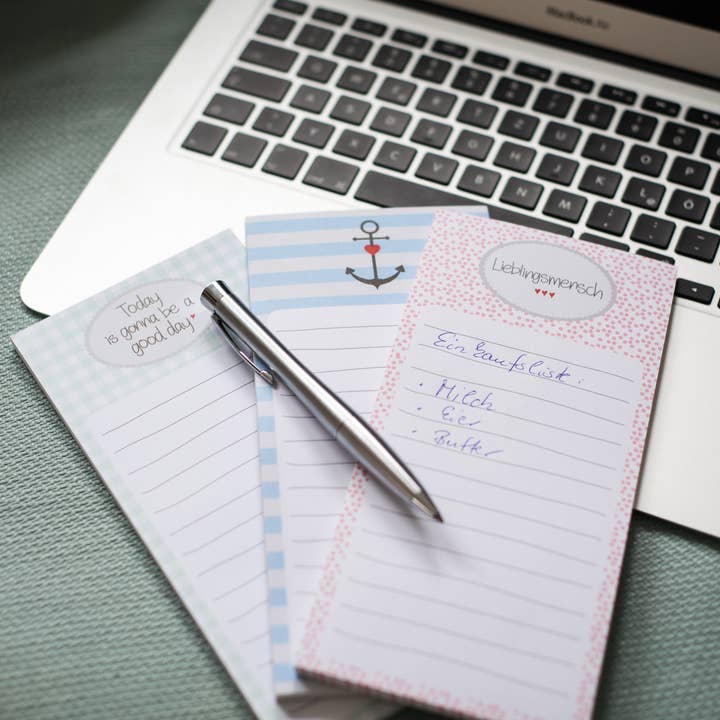 MacBook Air
Today
is gonna be a
good day
Lieblingsmensch
Einkaufsliste:
• Milch
• Eier
• Butter
Q W E R T Z U I O P Ü
A S D F G H J K L Ö
Y X C V B N M